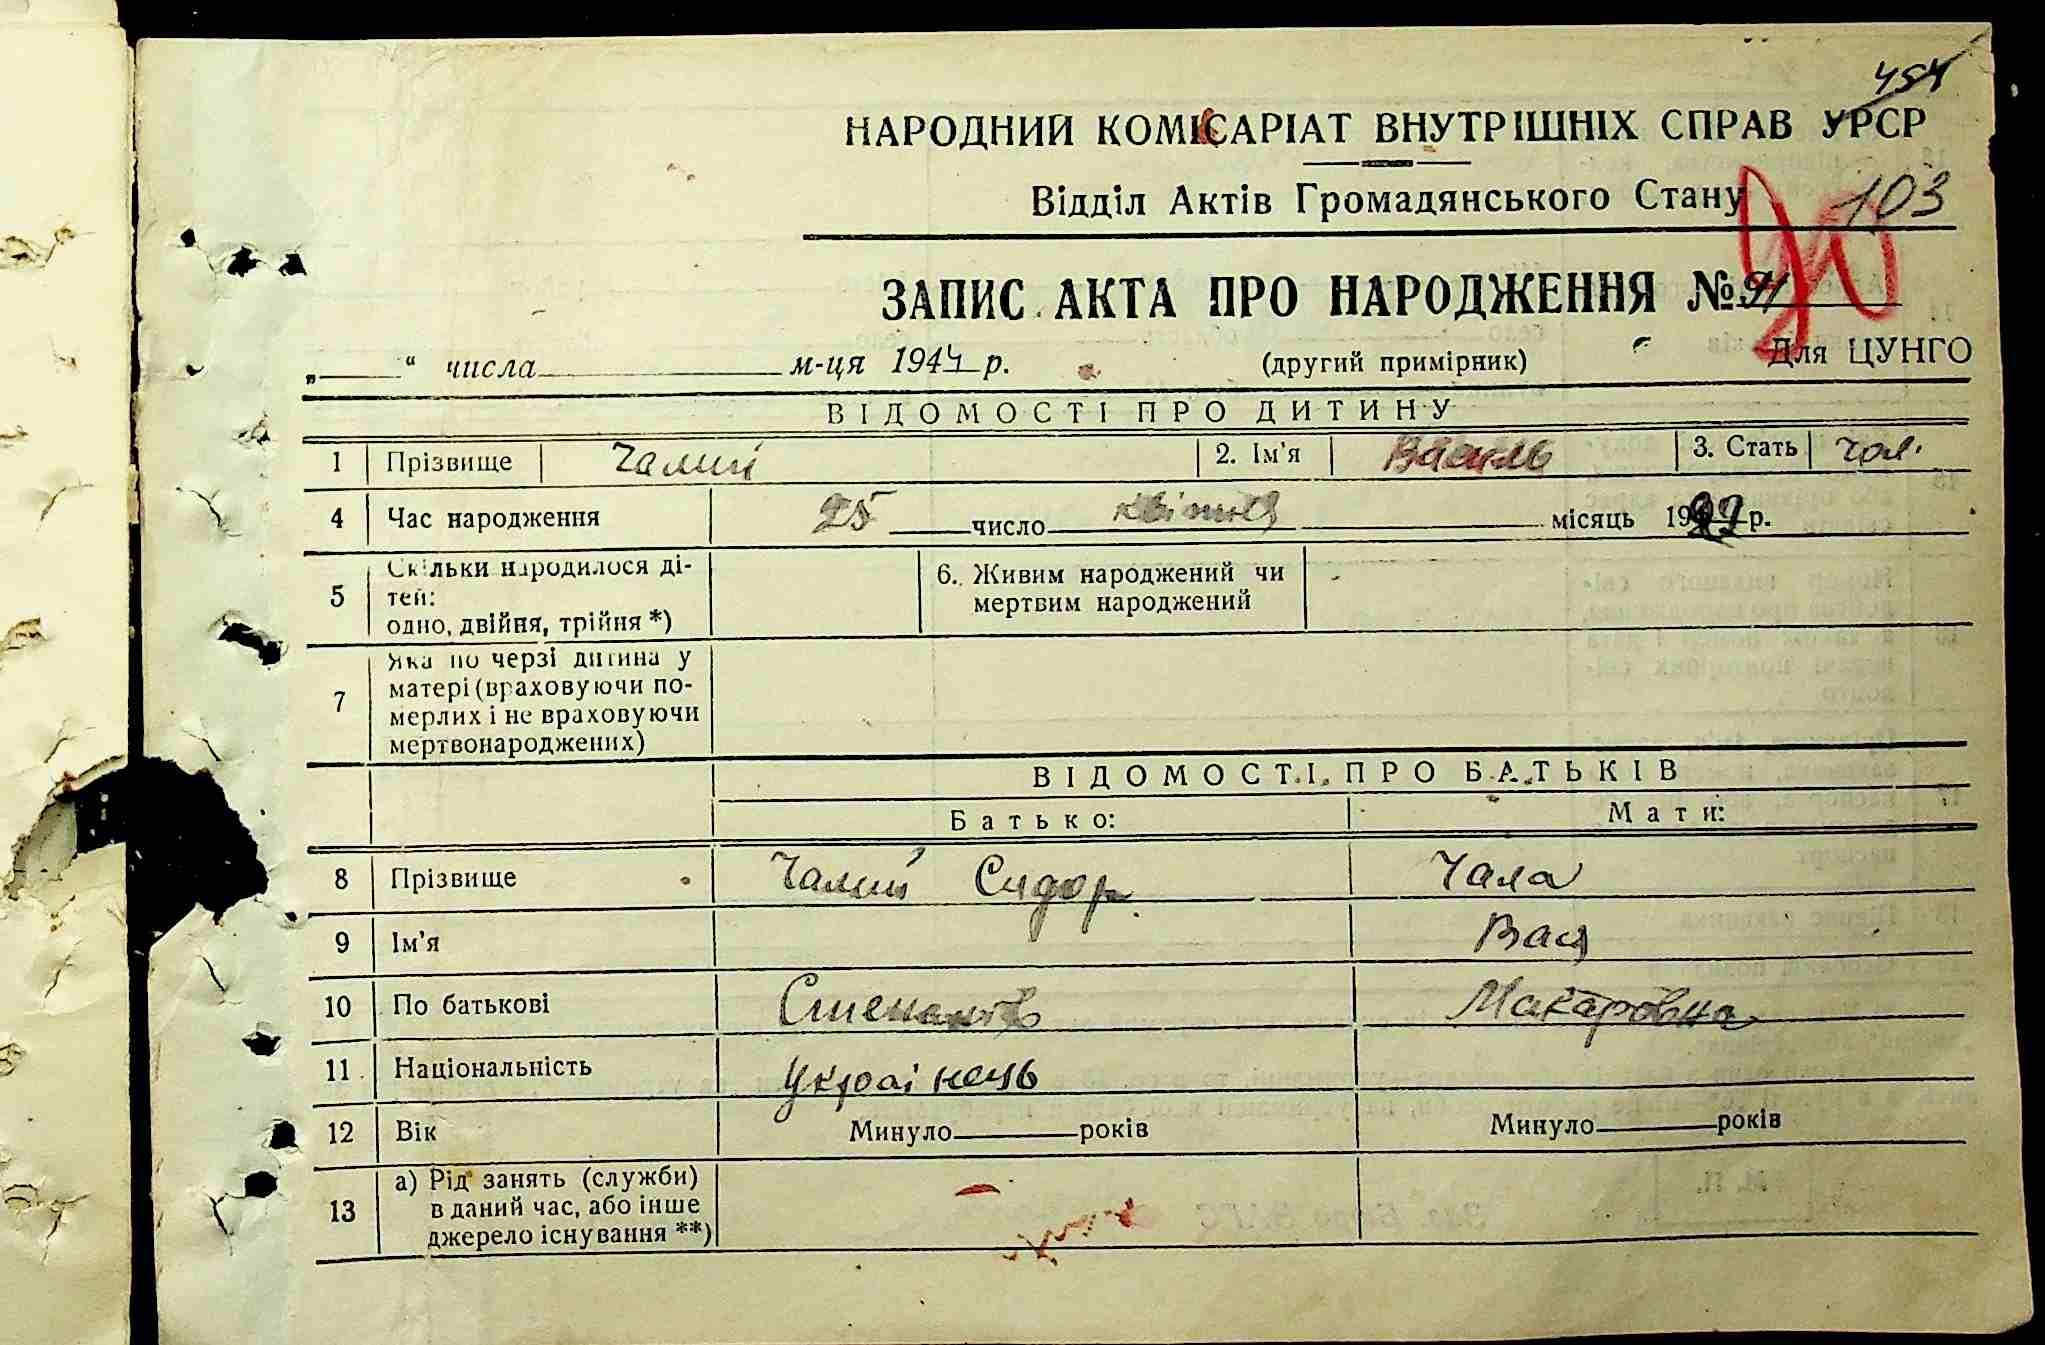 454
НАРОДНИЙ КОМІСАРІАТ ВНУТРІШНІХ СПРАВ УРСР
Відділ Актів Громадянського Стану 103
ЗАПИС АКТА ПРО НАРОДЖЕННЯ № 91 90
„ “ числа м-ця 1944 р. (другий примірник) Для ЦУНГО
ВІДОМОСТІ ПРО ДИТИНУ
1 Прізвище Чалий 2. Ім'я Василь 3. Стать чол.
4 Час народження 25 число квітня місяць 19 р.
5 Скільки народилося ді-
тей:
одно, двійня, трійня *)
6. Живим народжений чи
мертвим народжений
7 Яка по черзі дитина у
матері (враховуючи по-
мерлих і не враховуючи
мертвонароджених)
ВІДОМОСТІ ПРО БАТЬКІВ
Батько: Мати:
8 Прізвище Чалий Сидор Чала
9 Ім'я
10 По батькові Степанов Макаровна
11 Національність Українець
12 Вік Минуло років Минуло років
13 а) Рід занять (служби)
в даний час, або інше
джерело існування **)